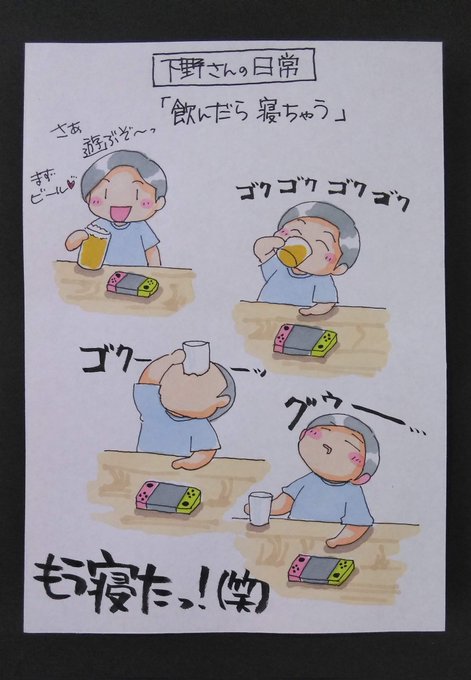 下野さんの日常
「飲んだら 寝ちゃう」
さあ
遊ぶぞ～っ
まず
ビール♥
ゴク ゴク ゴク ゴク
ゴクーーーッ
グゥーー…
もう寝たっ!(笑)